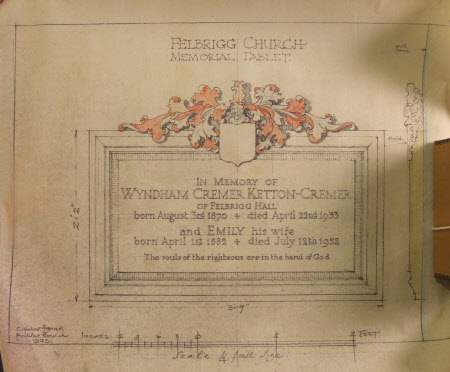 FELBRIGG CHURCH
MEMORIAL TABLET.
IN MEMORY OF
WYNDHAM CREMER KETTON-CREMER
OF FELBRIGG HALL
born August 3rd 1870 + died April 22nd 1933
and EMILY his wife
born April 1st 1882 + died July 12th 1952
The souls of the righteous are in the hand of God
2'. 2"
INCHES
FEET.
Scale ¼ full size